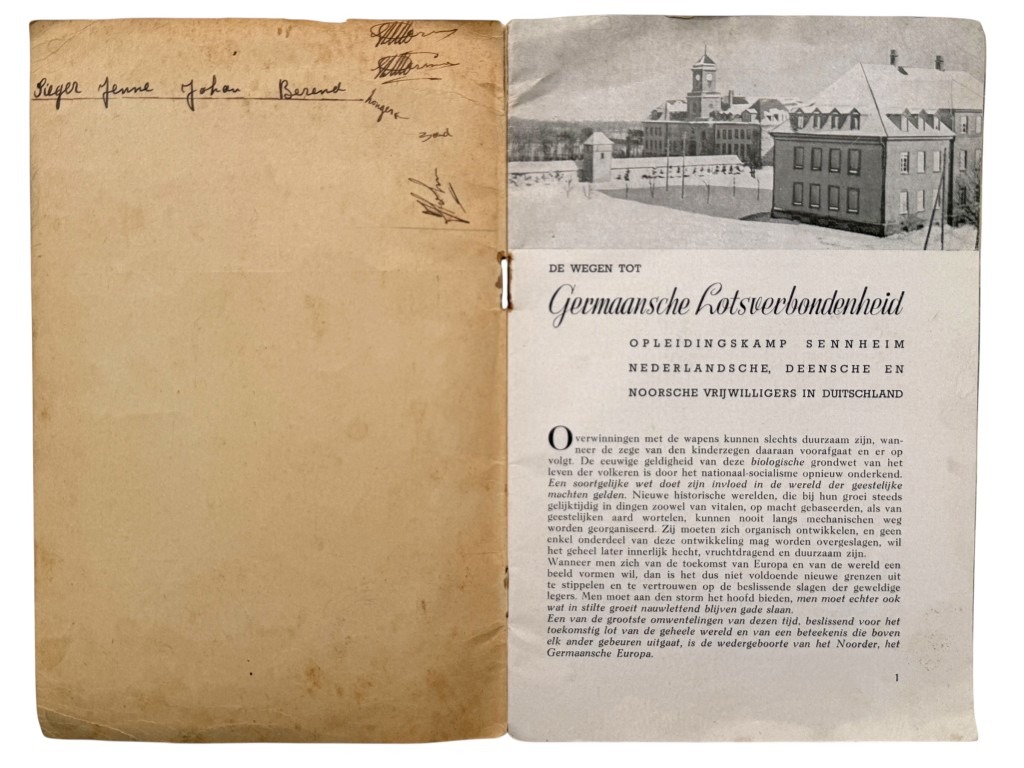 Sieger Jenne Johan Berend
DE WEGEN TOT
Germaansche Lotsverbondenheid
OPLEIDINGSKAMP SENNHEIM
NEDERLANDSCHE, DEENSCHE EN
NOORSCHE VRIJWILLIGERS IN DUITSCHLAND
Overwinningen met de wapens kunnen slechts duurzaam zijn, wan-
neer de zege van den kinderzegen daaraan voorafgaat en er op
volgt. De eeuwige geldigheid van deze biologische grondwet van het
leven der volkeren is door het nationaal-socialisme opnieuw onderkend.
Een soortgelijke wet doet zijn invloed in de wereld der geestelijke
machten gelden. Nieuwe historische werelden, die bij hun groei steeds
gelijktijdig in dingen zoowel van vitalen, op macht gebaseerden, als van
geestelijken aard wortelen, kunnen nooit langs mechanischen weg
worden georganiseerd. Zij moeten zich organisch ontwikkelen, en geen
enkel onderdeel van deze ontwikkeling mag worden overgeslagen, wil
het geheel later innerlijk hecht, vruchtdragend en duurzaam zijn.
Wanneer men zich van de toekomst van Europa en van de wereld een
beeld vormen wil, dan is het dus niet voldoende nieuwe grenzen uit
te stippelen en te vertrouwen op de beslissende slagen der geweldige
legers. Men moet aan den storm het hoofd bieden, men moet echter ook
wat in stilte groeit nauwlettend blijven gade slaan.
Een van de grootste omwentelingen van dezen tijd, beslissend voor het
toekomstig lot van de geheele wereld en van een beteekenis die boven
elk ander gebeuren uitgaat, is de wedergeboorte van het Noorder, het
Germaansche Europa.
1